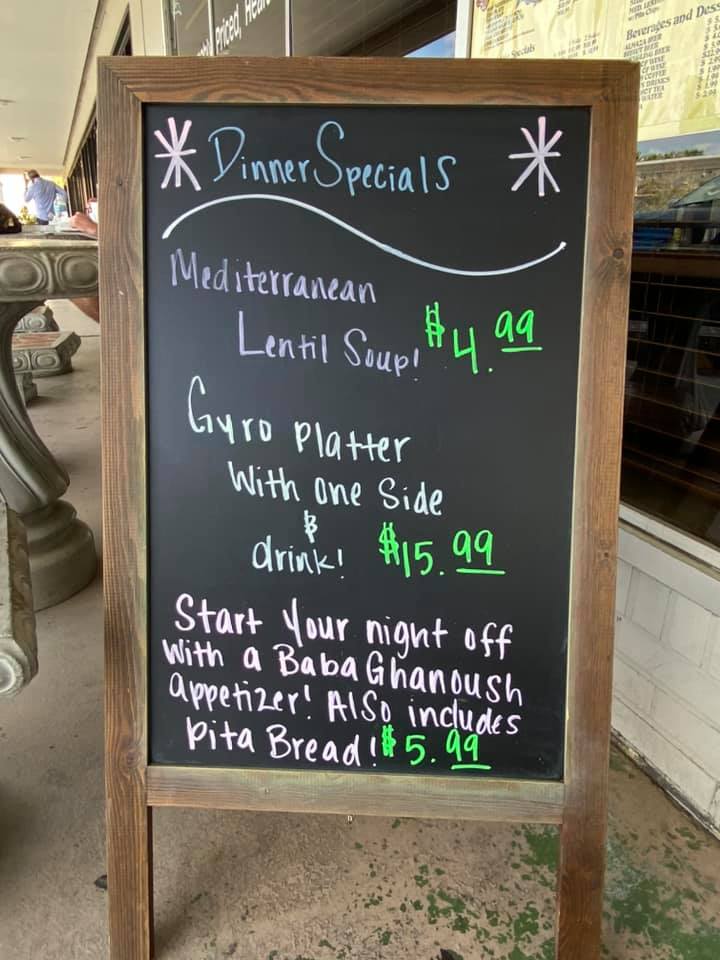 Priced,
Specials
Beverages and Dess
Dinner Specials
Mediterranean
Lentil Soup! $4.99
Gyro Platter
With one Side
&
drink! $15.99
Start Your night off
With a Baba Ghanoush
appetizer! Also includes
Pita Bread! $5.99